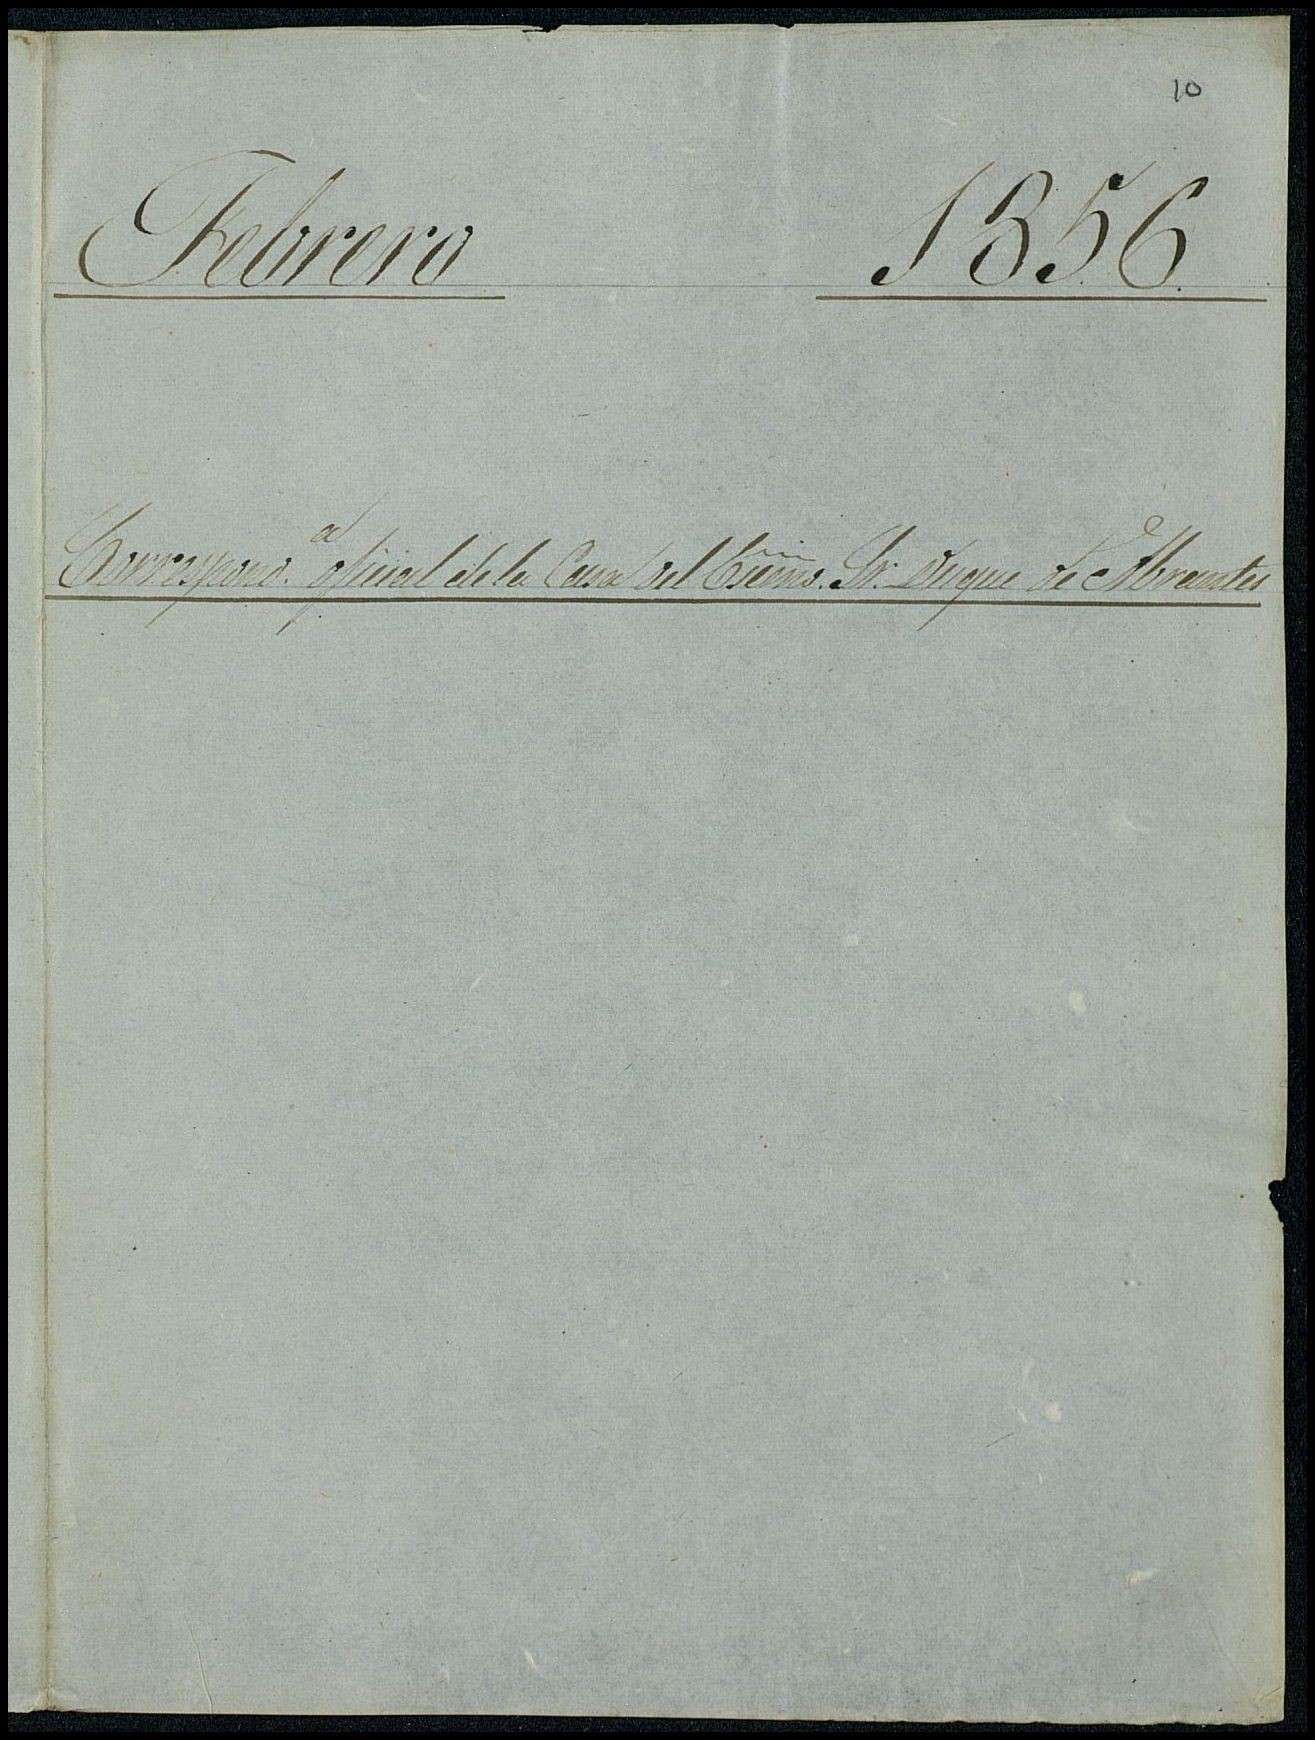 10
Febrero 1856.
Correspond.a oficial de la Casa del Excmo. Sr. Duque de Abrantes